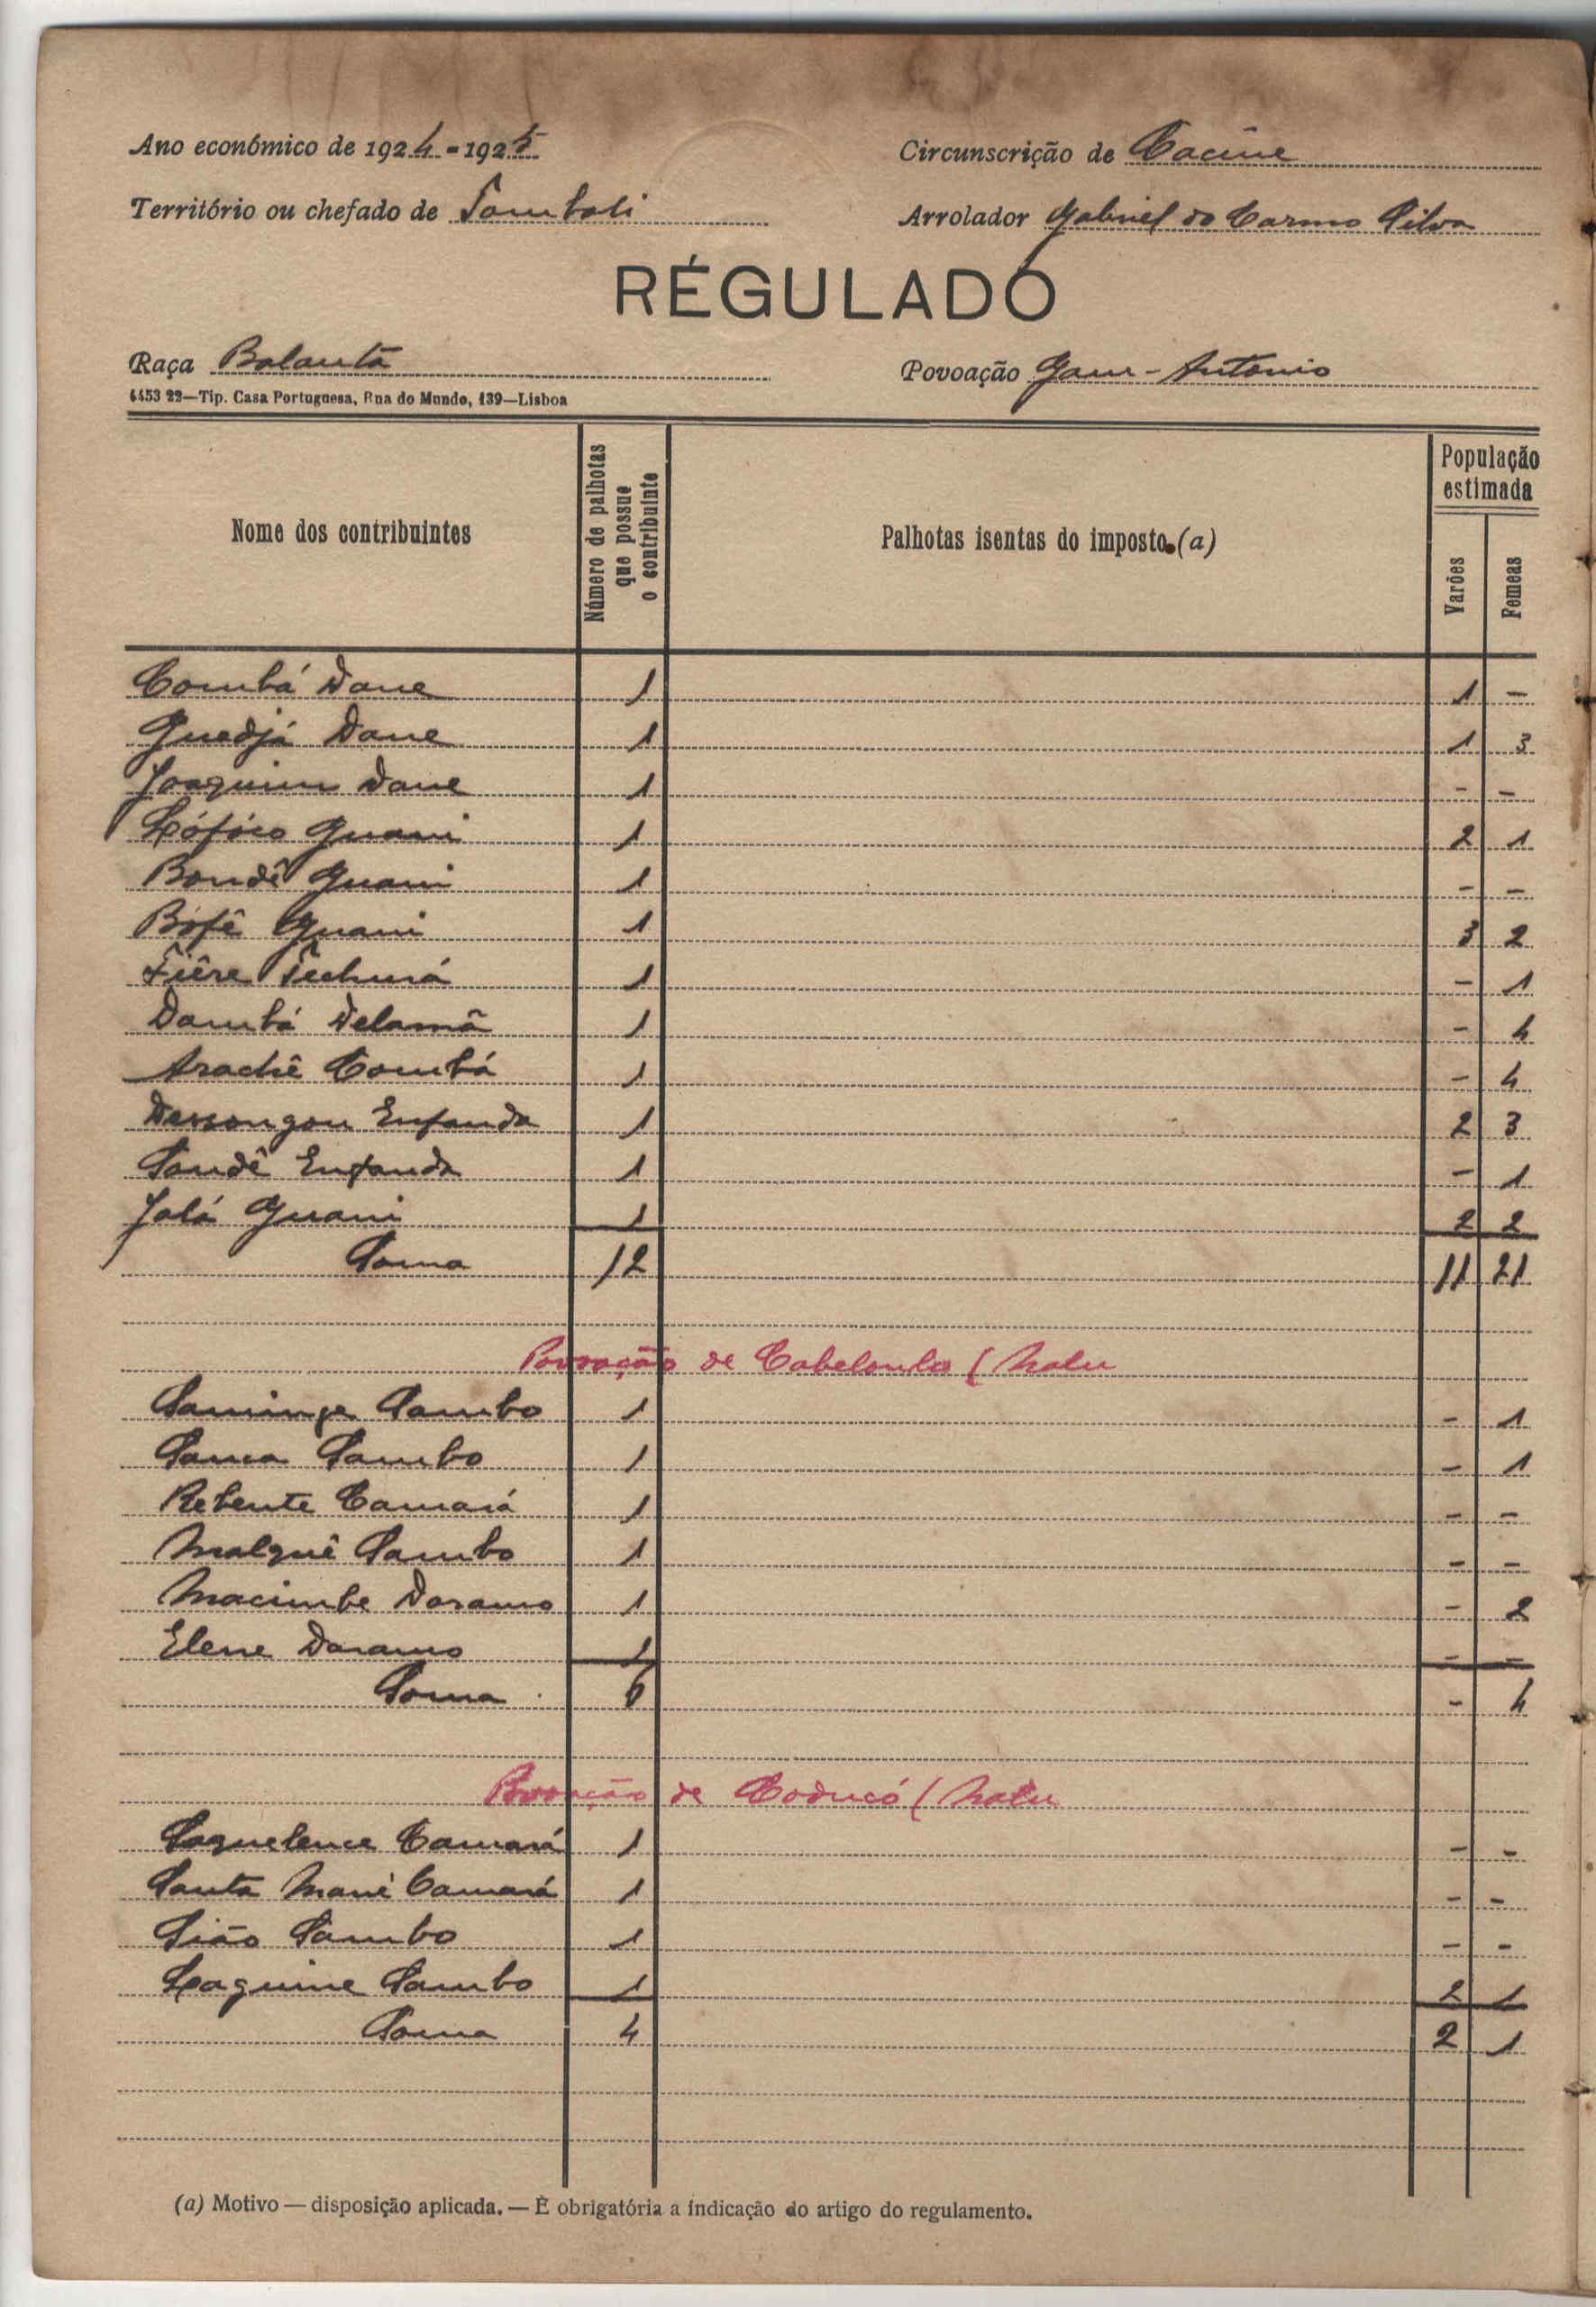 Ano económico de 1924-1925
Circunscrição de Cacine
Território ou chefado de Tombali
Arrolador Gabriel do Carmo Silva
RÉGULADO
Raça Balanta
Povoação Gam-Antonio
4453 22—Tip. Casa Portuguesa, Rua do Mundo, 139—Lisboa
Nome dos contribuintes
Número de palhotas que possue o contribuinte
Palhotas isentas do imposto (a)
População estimada
Varões
Femeas
Combá Dane 1 1 -
Guedjá Dane 1 1 3
Joaquim Dane 1 - -
Guani 1 2 1
Bondê Guani 1 - -
Bófê Guani 1 3 2
1 - 1
Dambá Delamã 1 - 4
Arachê Combá 1 - 4
Enfanda 1 2 3
Sandê Enfanda 1 - 1
Jalá Guani 1 2 2
Soma 12 11 21
Povoação de Cabelonba (Nalu
Saminge Sambo 1 - 1
Sanca Sambo 1 - 1
Rebente Camará 1 - -
Malquê Sambo 1 - -
Macimbe Daramo 1 - 2
Elene Daramo 1 - -
Soma 6 - 4
Povoação de Coducó (Nalu
Saquelence Camará 1 - -
Santa Mané Camará 1 - -
Sião Sambo 1 - -
Laguine Sambo 1 2 1
Soma 4 2 1
(a) Motivo — disposição aplicada. — É obrigatória a indicação do artigo do regulamento.